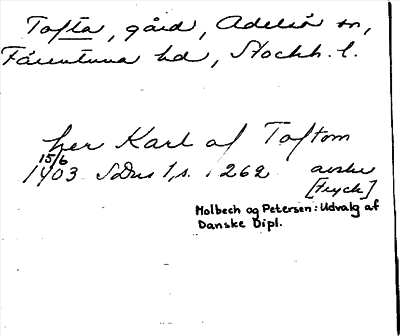 Tofta, gård, Adelsö sn,
Färentuna hd, Stockh. l.
her Karl af Toftom
15/6
1403 SDns 1, s. 262 avskr
[tryck]
Molbech og Petersen: Udvalg af
Danske Dipl.